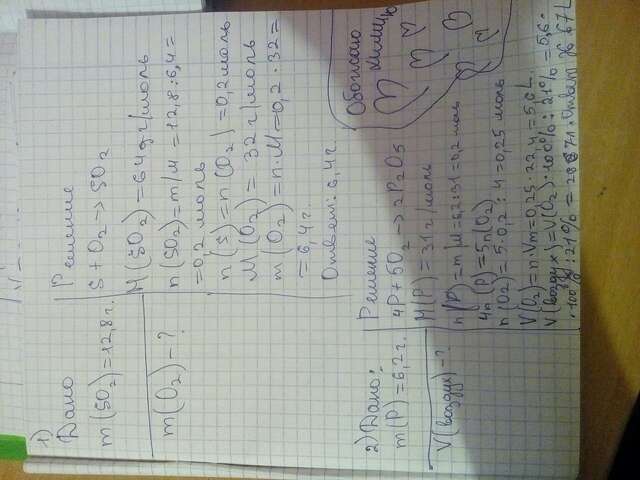 1)
Дано
m(SO2)=12,8г.
m(O2)-?
Решение
S+O2→SO2
M(SO2)=64г/моль
n(SO2)=m/M=12,8:6,4=
=0,2 моль
n(S)=n(O2)=0,2моль
M(O2)=32г/моль
m(O2)=n·M=0,2·32=
=6,4г.
Ответ: 6,4г.
Обожаю
химию
2) Дано:
m(P)=6,2г.
V(воздух)-?
Решение
4P+5O2→2P2O5
M(P)=31г/моль
n(P)=m/M=6,2:31=0,2 моль
4n(P)=5n(O2)
n(O2)=5·0,2:4=0,25 моль
V(O2)=n·Vm=0,25·22,4=5,6L
V(воздух)=V(O2)·100%:21%=5,6·
·100%:21%=26,67л. Ответ 26,67L